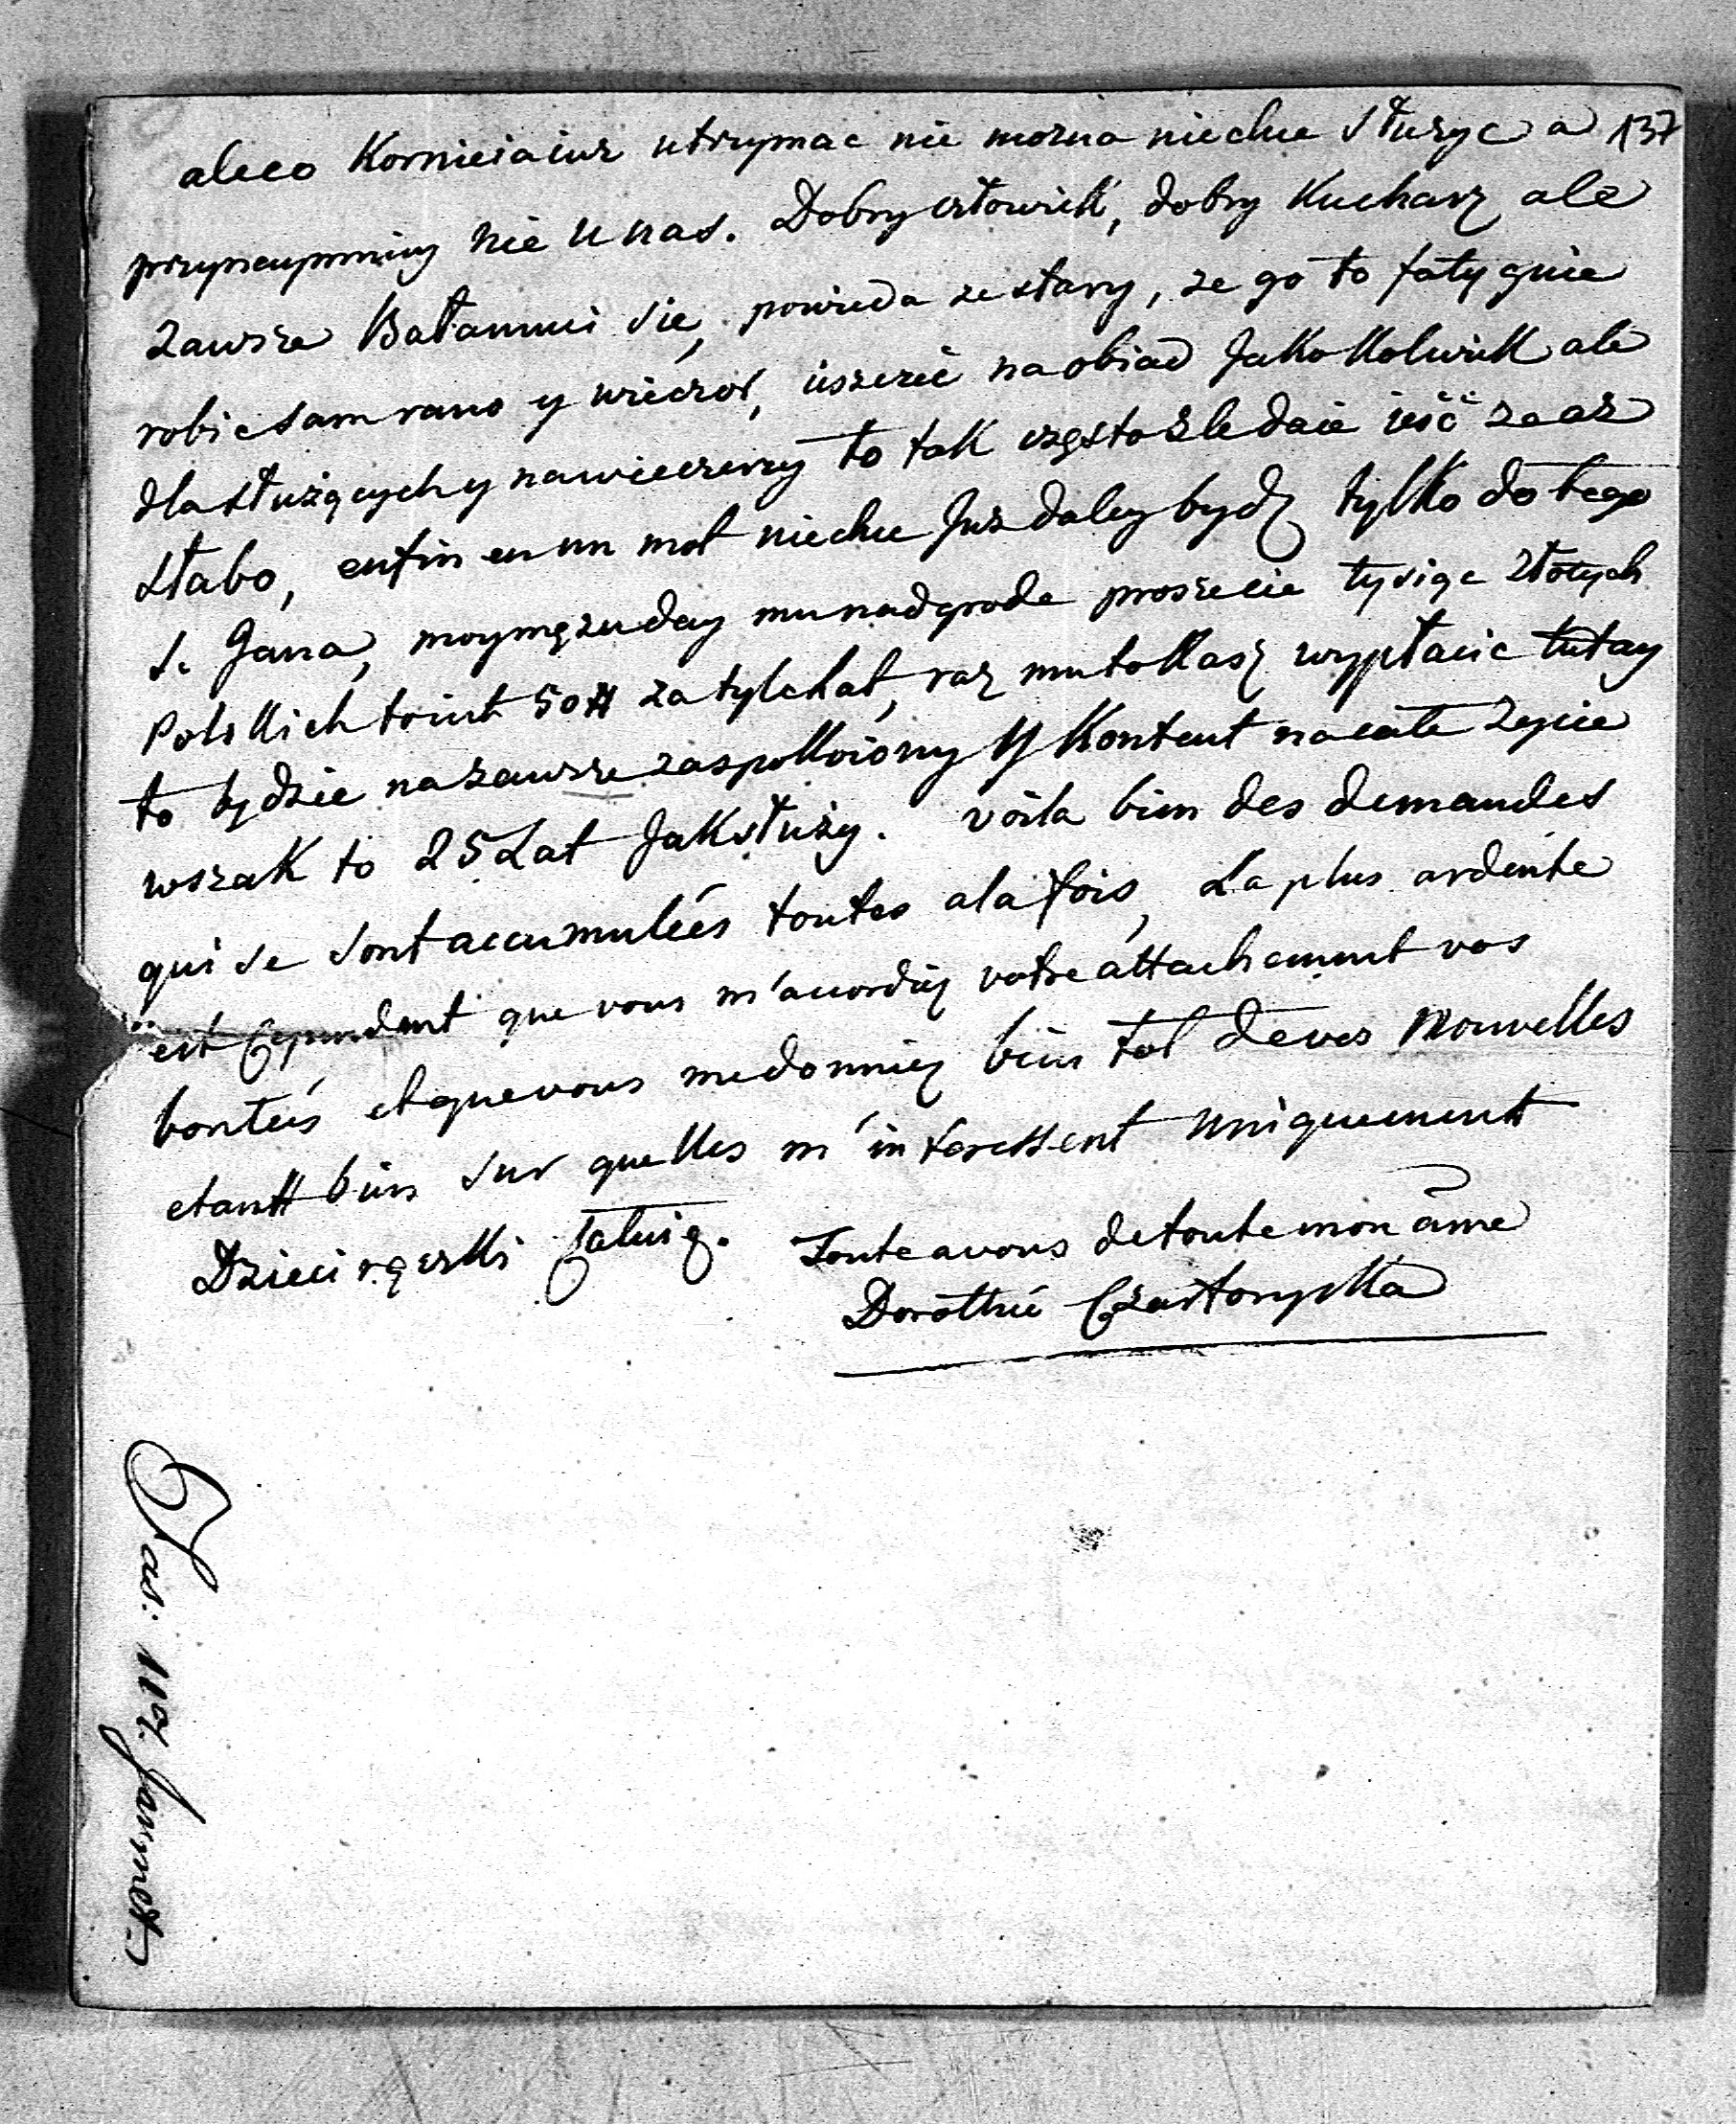 aleco Kornieia iuz utrzymac nie mozna niechce słuzyc a 137
przynaymniey nie u nas. Dobry człowiek, dobry Kucharz ale
zawsze Bałamuci sie, powieda ze stary, ze go to fatyguie
robic sam rano y wieczor, ieszcze na obiad Jakokolwiek ale
dla służących y na wieczerzy to tak często zle daie ieść ze az
słabo, enfin en un mot niechce Juz daley bydz tylko do tego
S. Jana, moy mężu day mu nadgrode prosze cie tysiąc złotych
Polskich to iest 50# za tyle lat, raz mu to kasz wypłacic tutay
to będzie na zawsze zaspokoiony y Kontent na całe zycie
wszak to 25 Lat Jak służy. voila bien des demandes
qui se sont accumulées toutes a la fois, La plus ardente
est Cependent que vous m'accordiez votre attachement vos
bontées et que vous me donniez bien tot de vos Nouvelles
etantt bien sur quelles m'interessent uniquement
Dzieci rączki Całuią. Toute a vous de toute mon âme
Dorothée Czartoryska
Fas: 119.